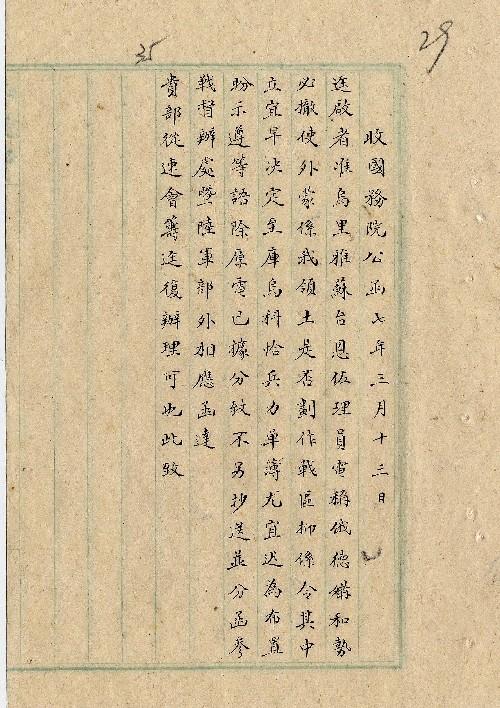 29
35
收國務院公函七年三月十三日
逕啟者准烏里雅蘇台恩佐理員電稱俄德媾和勢
必撤使外蒙係我領土是否劃作戰區抑係令其中
立宜早決定至庫烏科恰兵力單薄尤宜迅為布置
盼示遵等語除原電已據分致不另抄送並分函參
戰督辦處暨陸軍部外相應函達
貴部從速會籌逕復辦理可也此致